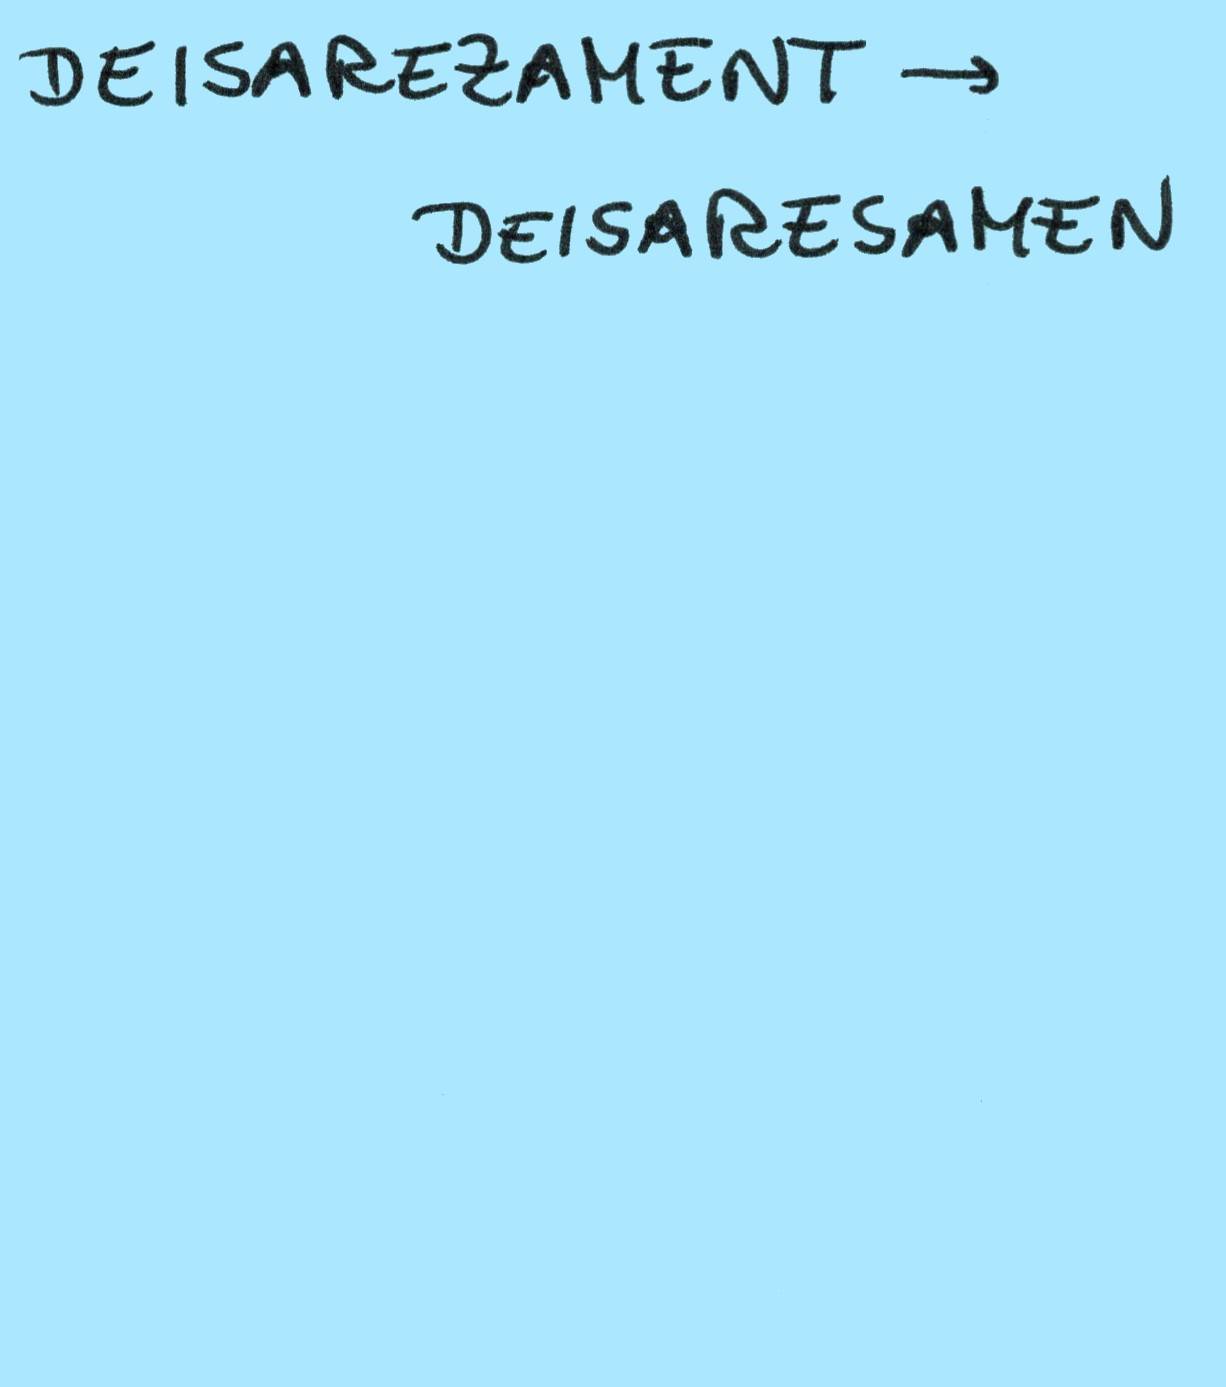 DEISAREZAMENT →
DEISARESAMEN